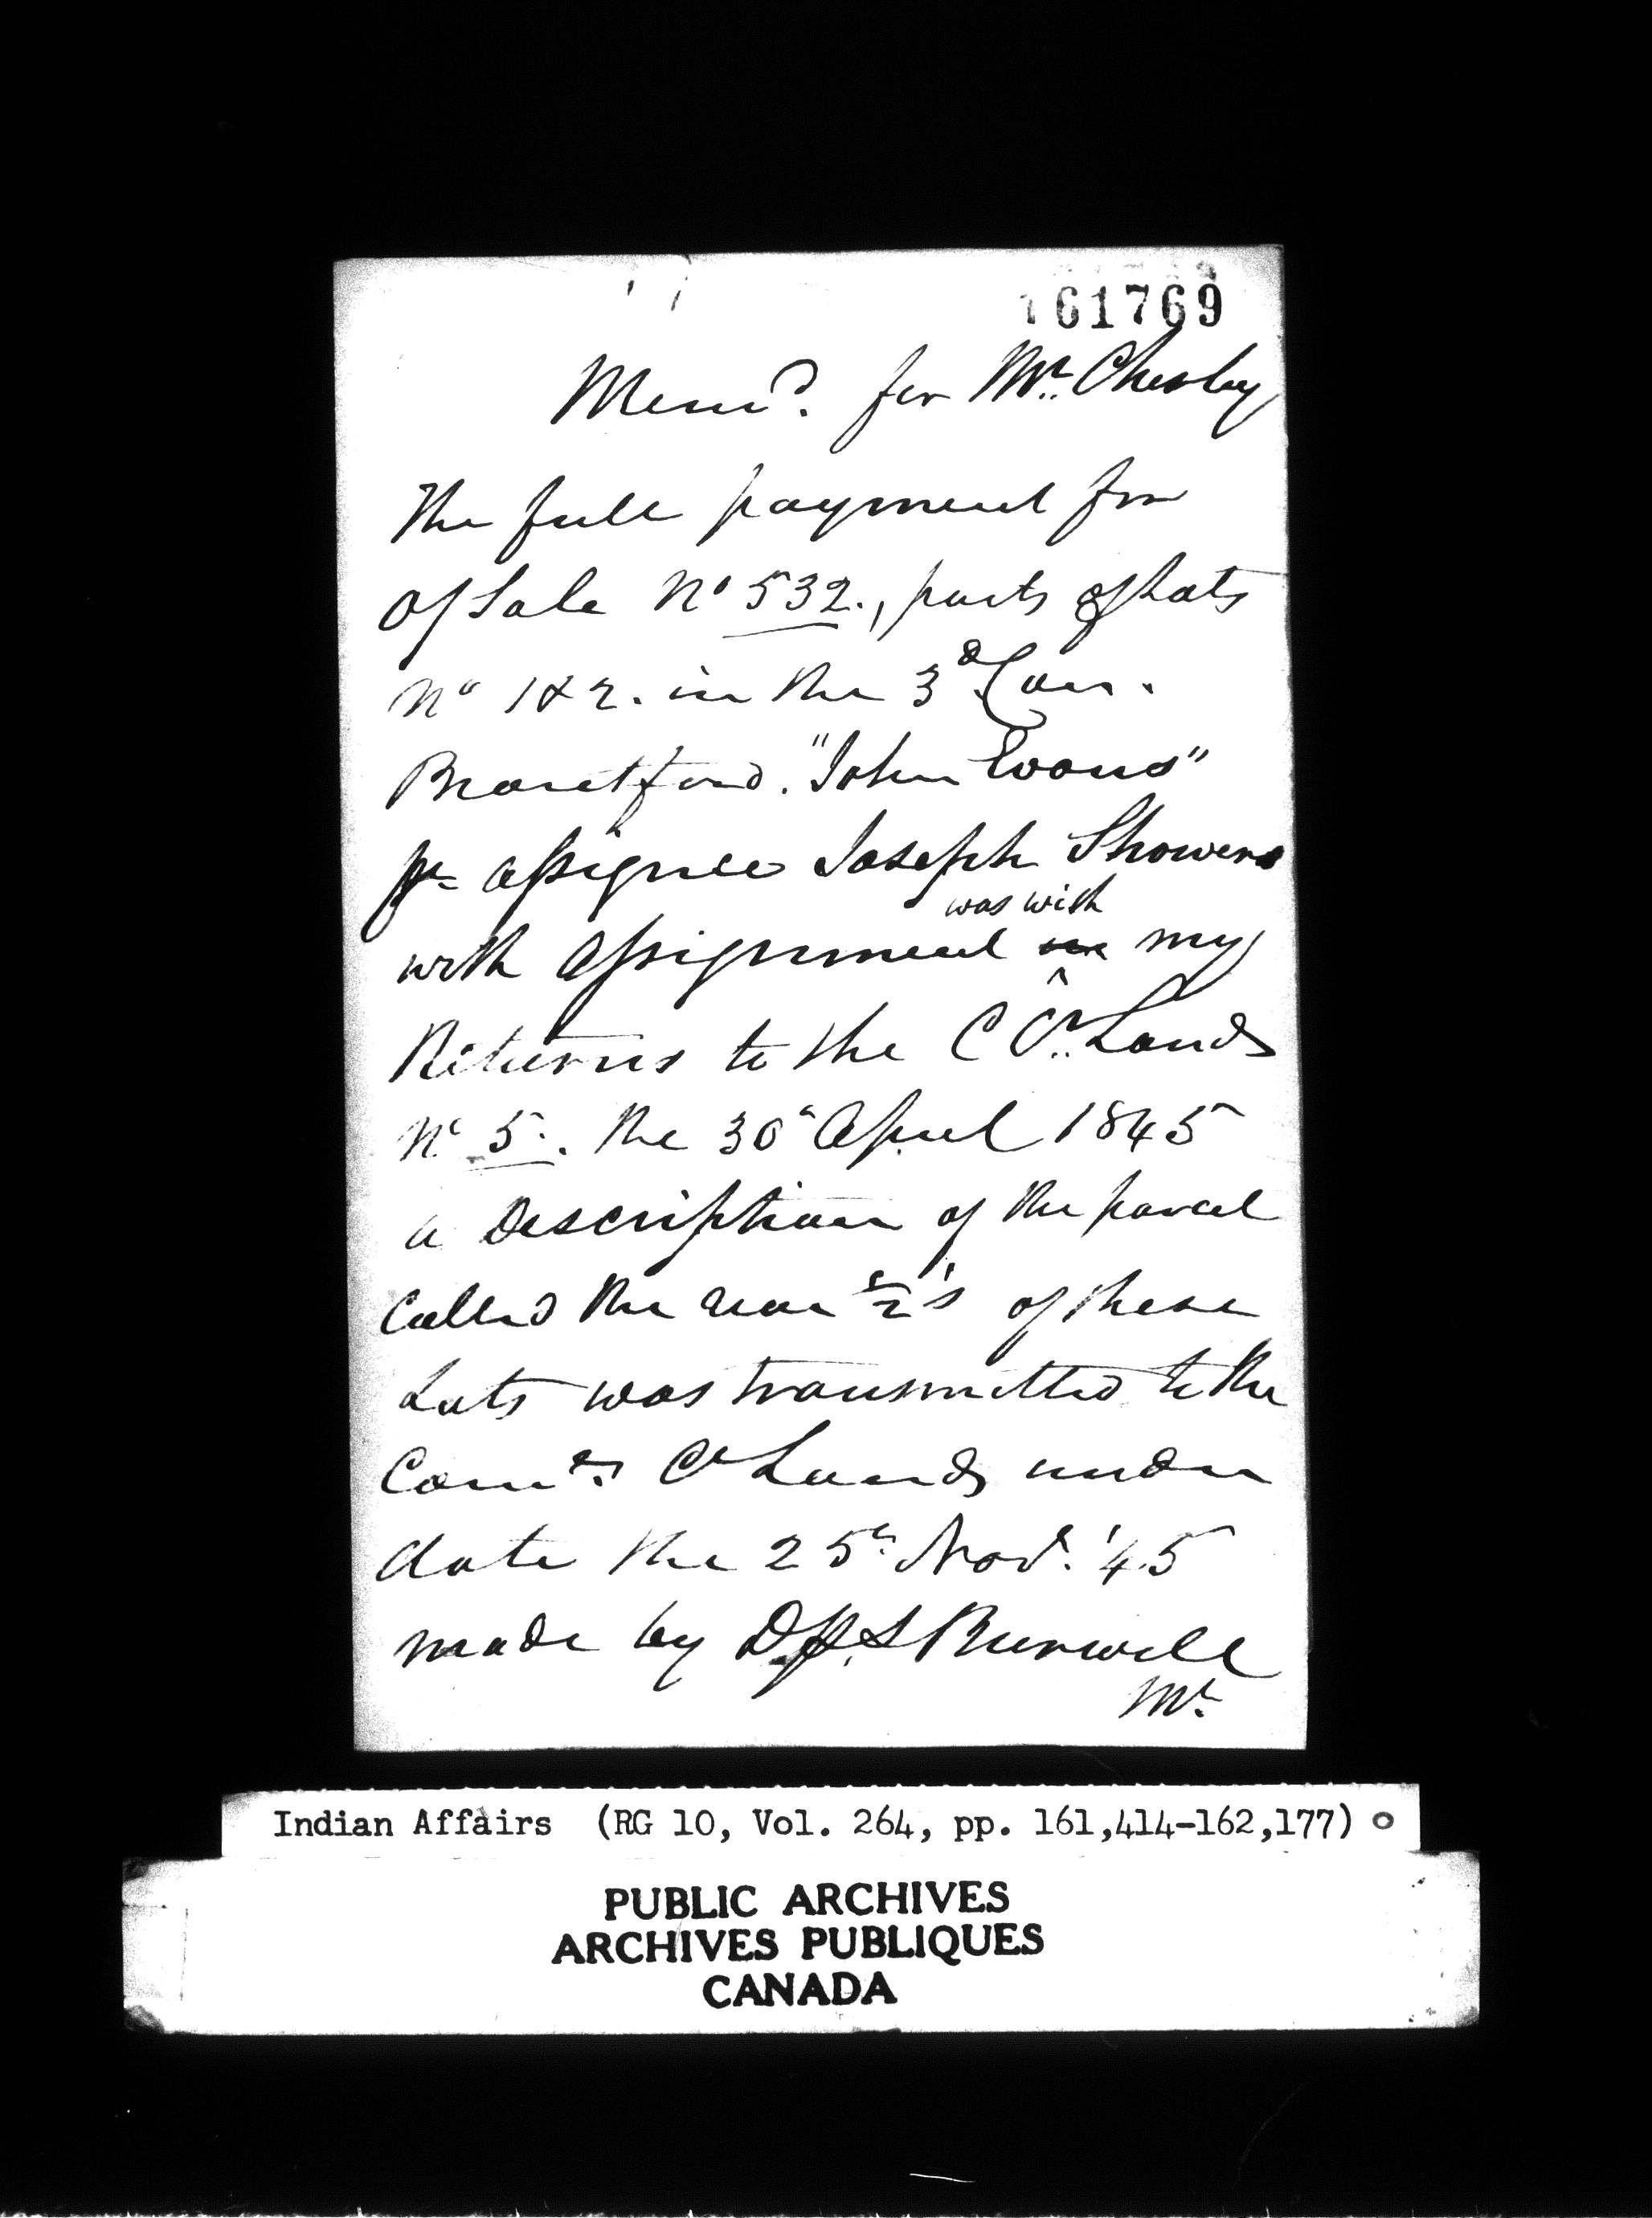 161769
Memo. for Mr. Chesley
The full payment for
of Sale No 532., parts of Lots
No 1 & 2. in the 3d Con.
Brantford. "John Evans"
pr assignee Joseph Showers
was with
with assignment my
Returns to the C Cn. Lands
No 5. the 30th April 1845
a Description of the parcel
called the rear ½'s of these
Lots was transmitted to the
Comr. Cn Lands under
date the 25th Novr. '45
made by Dy. S Burwell
Indian Affairs (RG 10, Vol. 264, pp. 161,414-162,177)
PUBLIC ARCHIVES
ARCHIVES PUBLIQUES
CANADA